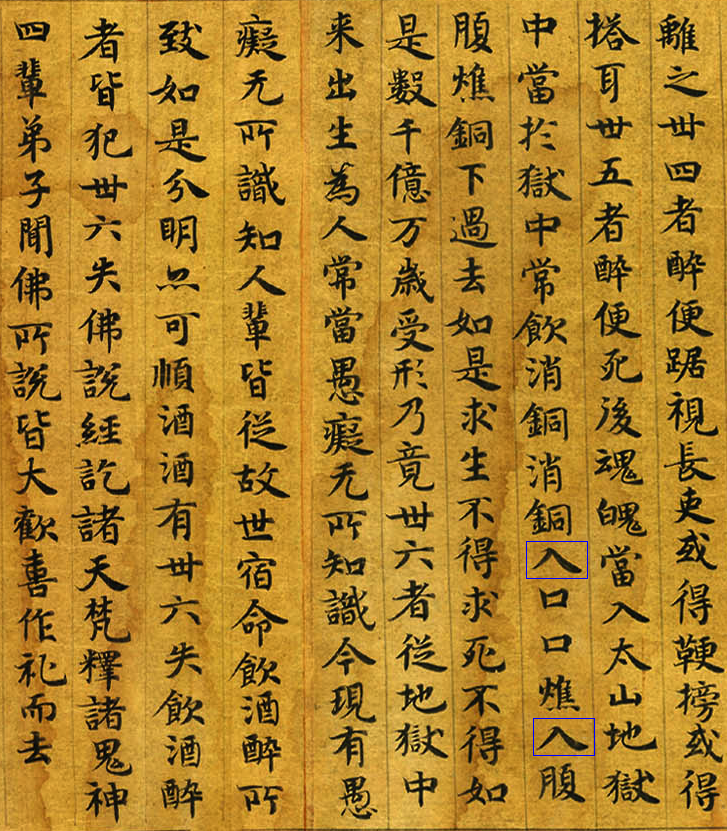 離之丗四者醉便踞視長吏或得鞕搒或得
塔耳丗五者醉便死後魂魄當入太山地獄
中當扵獄中常飲消銅消銅入口口燋入腹
腹燋銅下過去如是求生不得求死不得如
是數千億万歲受形乃竟丗六者從地獄中
来出生為人常當愚癡无所知識今現有愚
癡无所識知人輩皆從故世宿命飲酒醉所
致如是分明亦可慎酒酒有丗六失飲酒醉
者皆犯丗六失佛說經訖諸天梵釋諸鬼神
四輩弟子聞佛所說皆大歡喜作礼而去